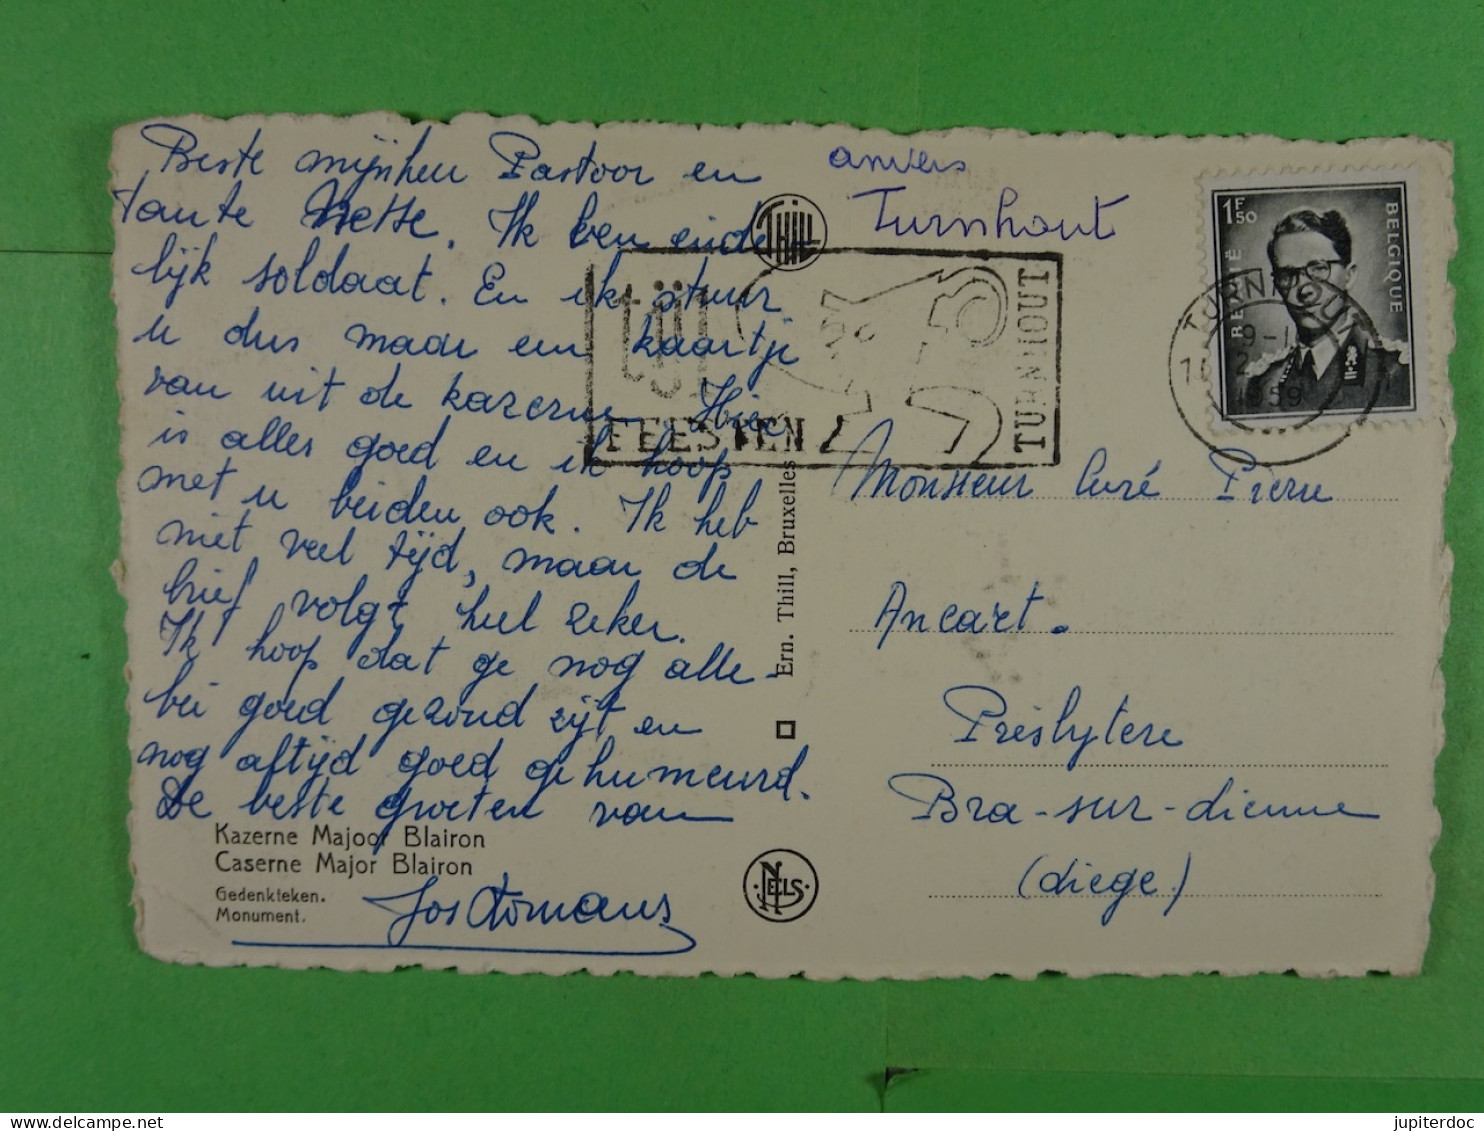 Beste mijnheer Pastoor en
tante Nette. Ik ben einde-
lijk soldaat. En ik stuur
u dus maar een kaartje
van uit de kazerne. Hier
is alles goed en ik hoop
met u beiden ook. Ik heb
niet veel tijd, maar de
brief volgt heel zeker.
Ik hoop dat ge nog alle-
bei goed gezond zijt en
nog altijd goed gehumeurd.
De beste groeten van
Kazerne Majoor Blairon
Caserne Major Blairon
Gedenkteken.
Monument.
Thill
FEESTEN
TURNHOUT
Ern. Thill, Bruxelles
NELS
anvers
Turnhout
1F50
BELGIQUE
BELGIË
TURNHOUT
1959
Monsieur Curé Pierre
Ancart.
Presbytère
Bra-sur-Lienne
(Liège)
jupiterdoc
delcampe.net